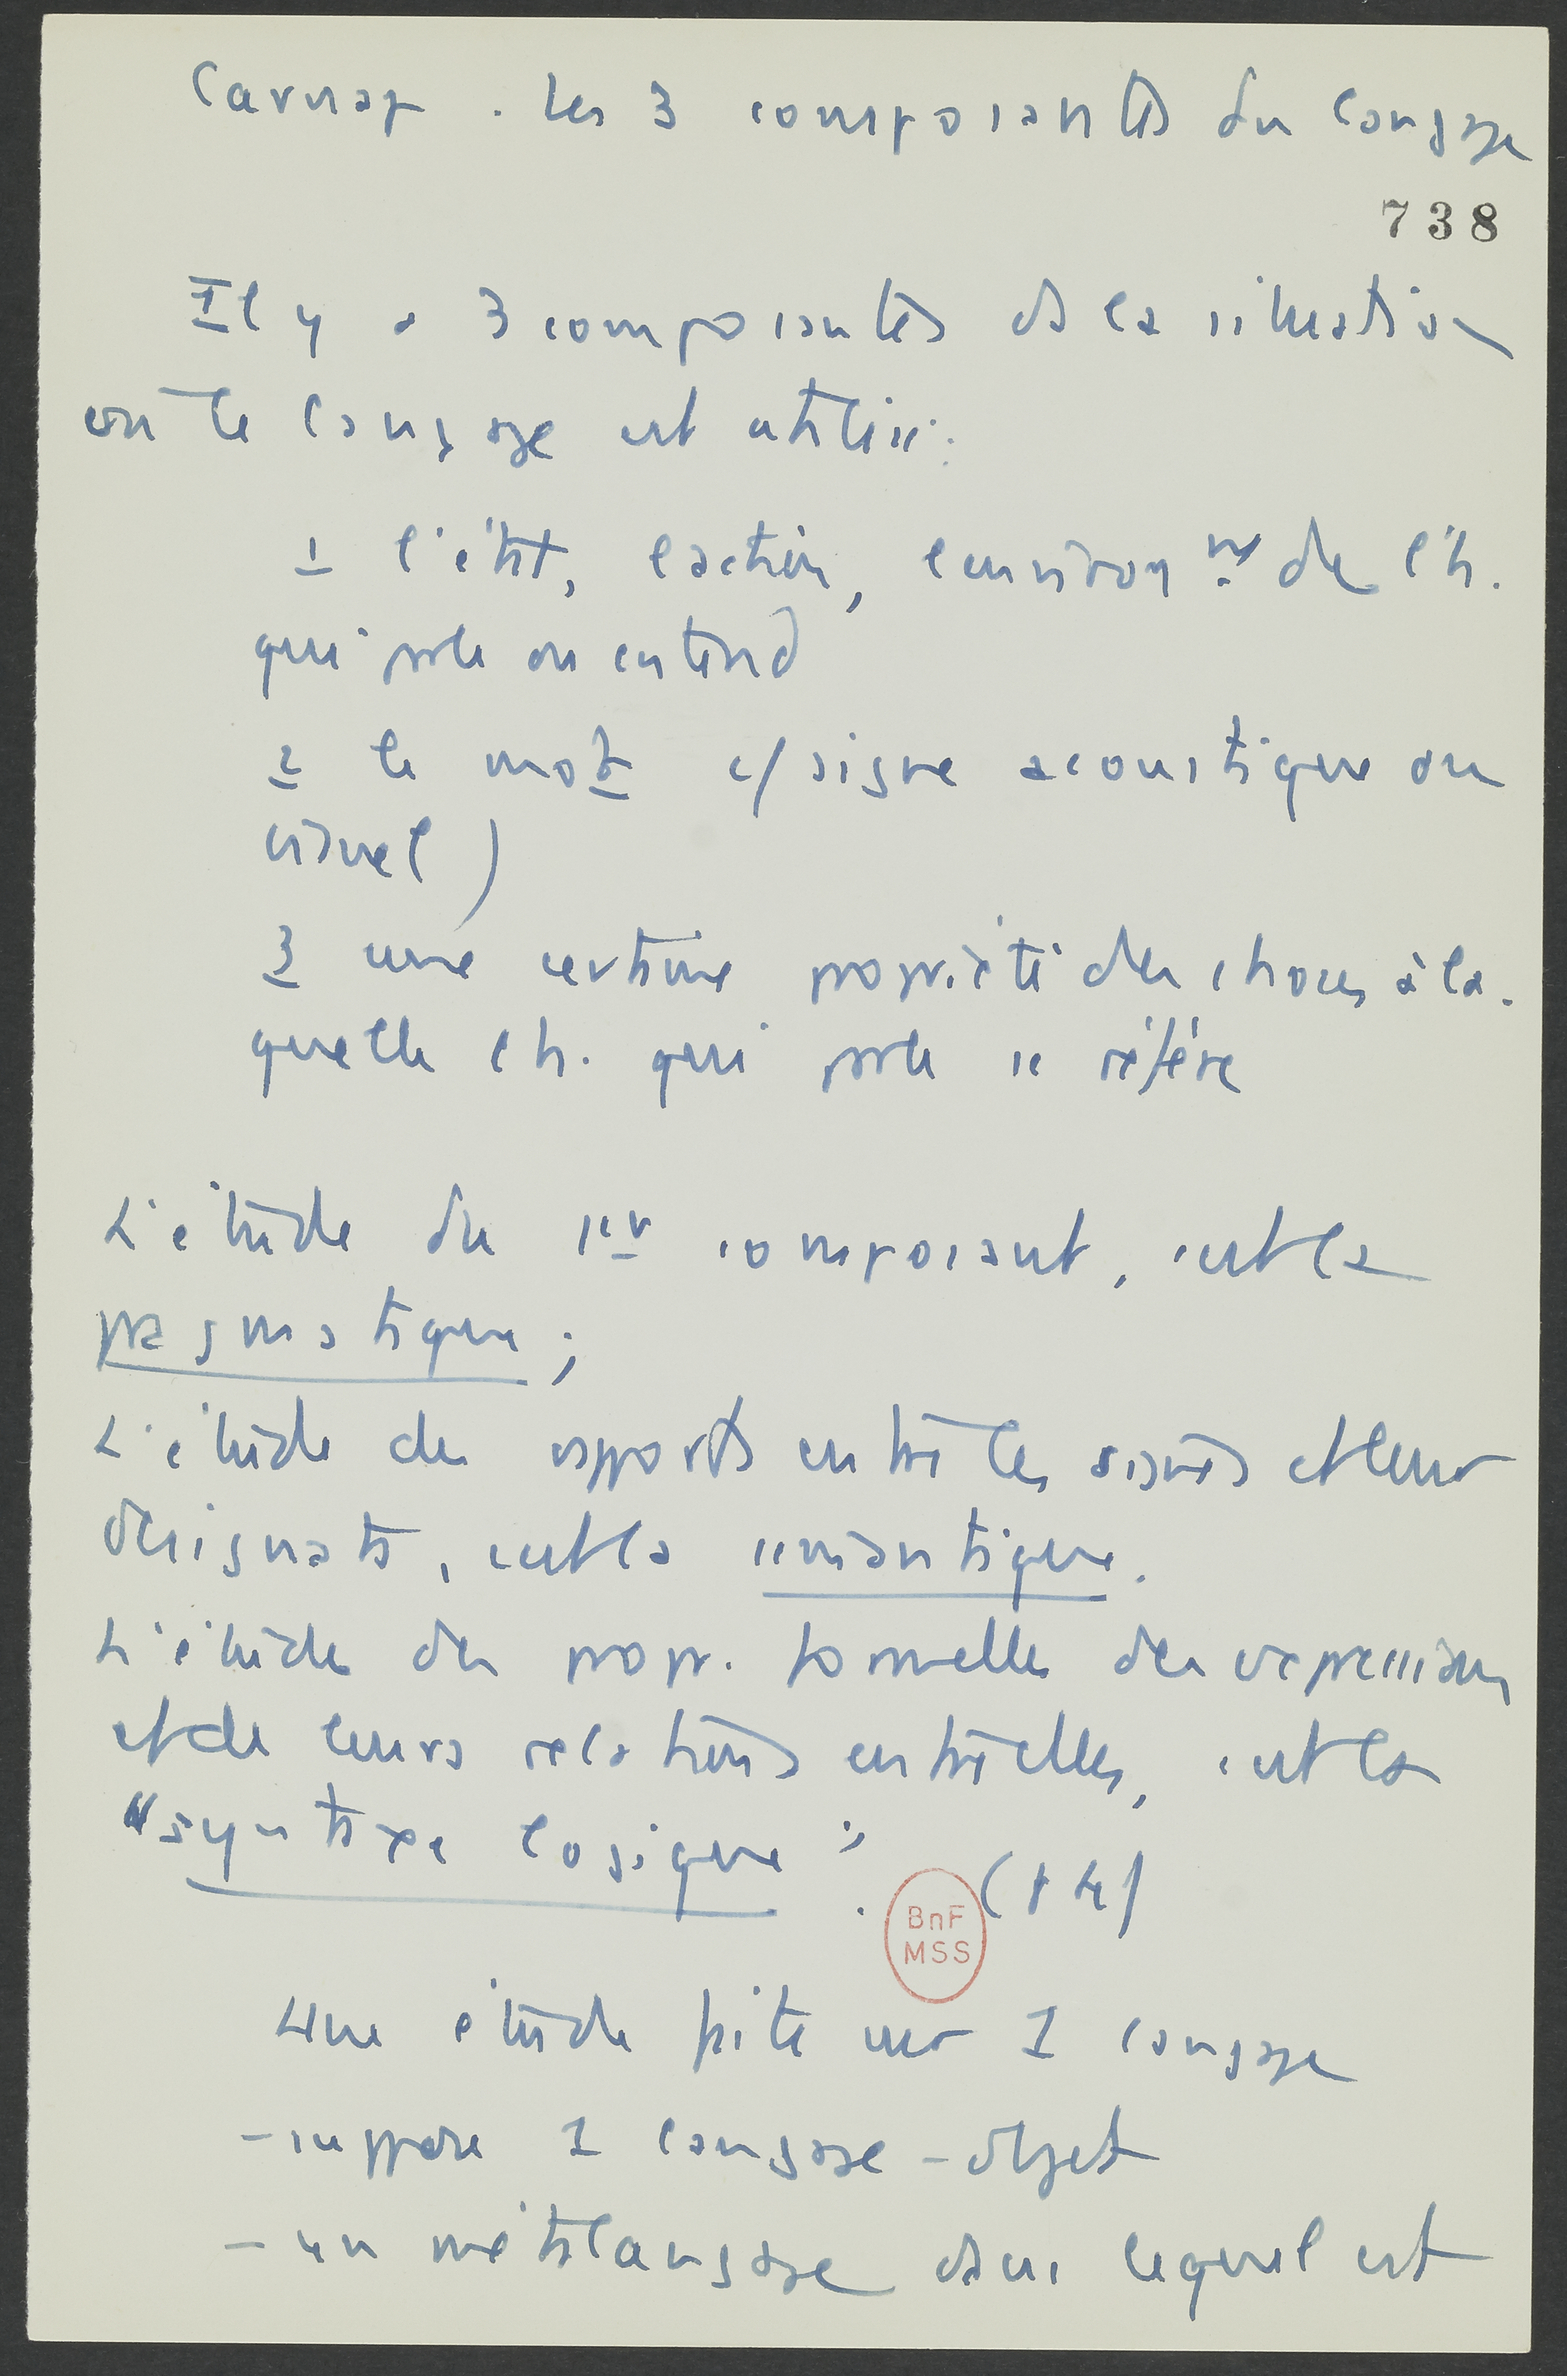 Carnap. Les 3 composants du langage
738
Il y a 3 composantes ds la situation
où le langage est utilisé :
1 l'état, l'action, l'environnt de l'h.
qui parle ou entend
2 le mot (c/ signe acoustique ou
visuel)
3 une certaine propriété des choses à la-
quelle l'h. qui parle se réfère
L'étude du 1er composant, c'est la
pragmatique ;
L'étude des rapports entre les signes et leur
designata, c'est la sémantique.
L'étude des propr. formelles des expressions
et de leurs relations entre elles, c'est la
"syntaxe logique".
BnF
MSS
Une étude faite sur 1 langage
- suppose 1 langage-objet
- un métalangage dans lequel est